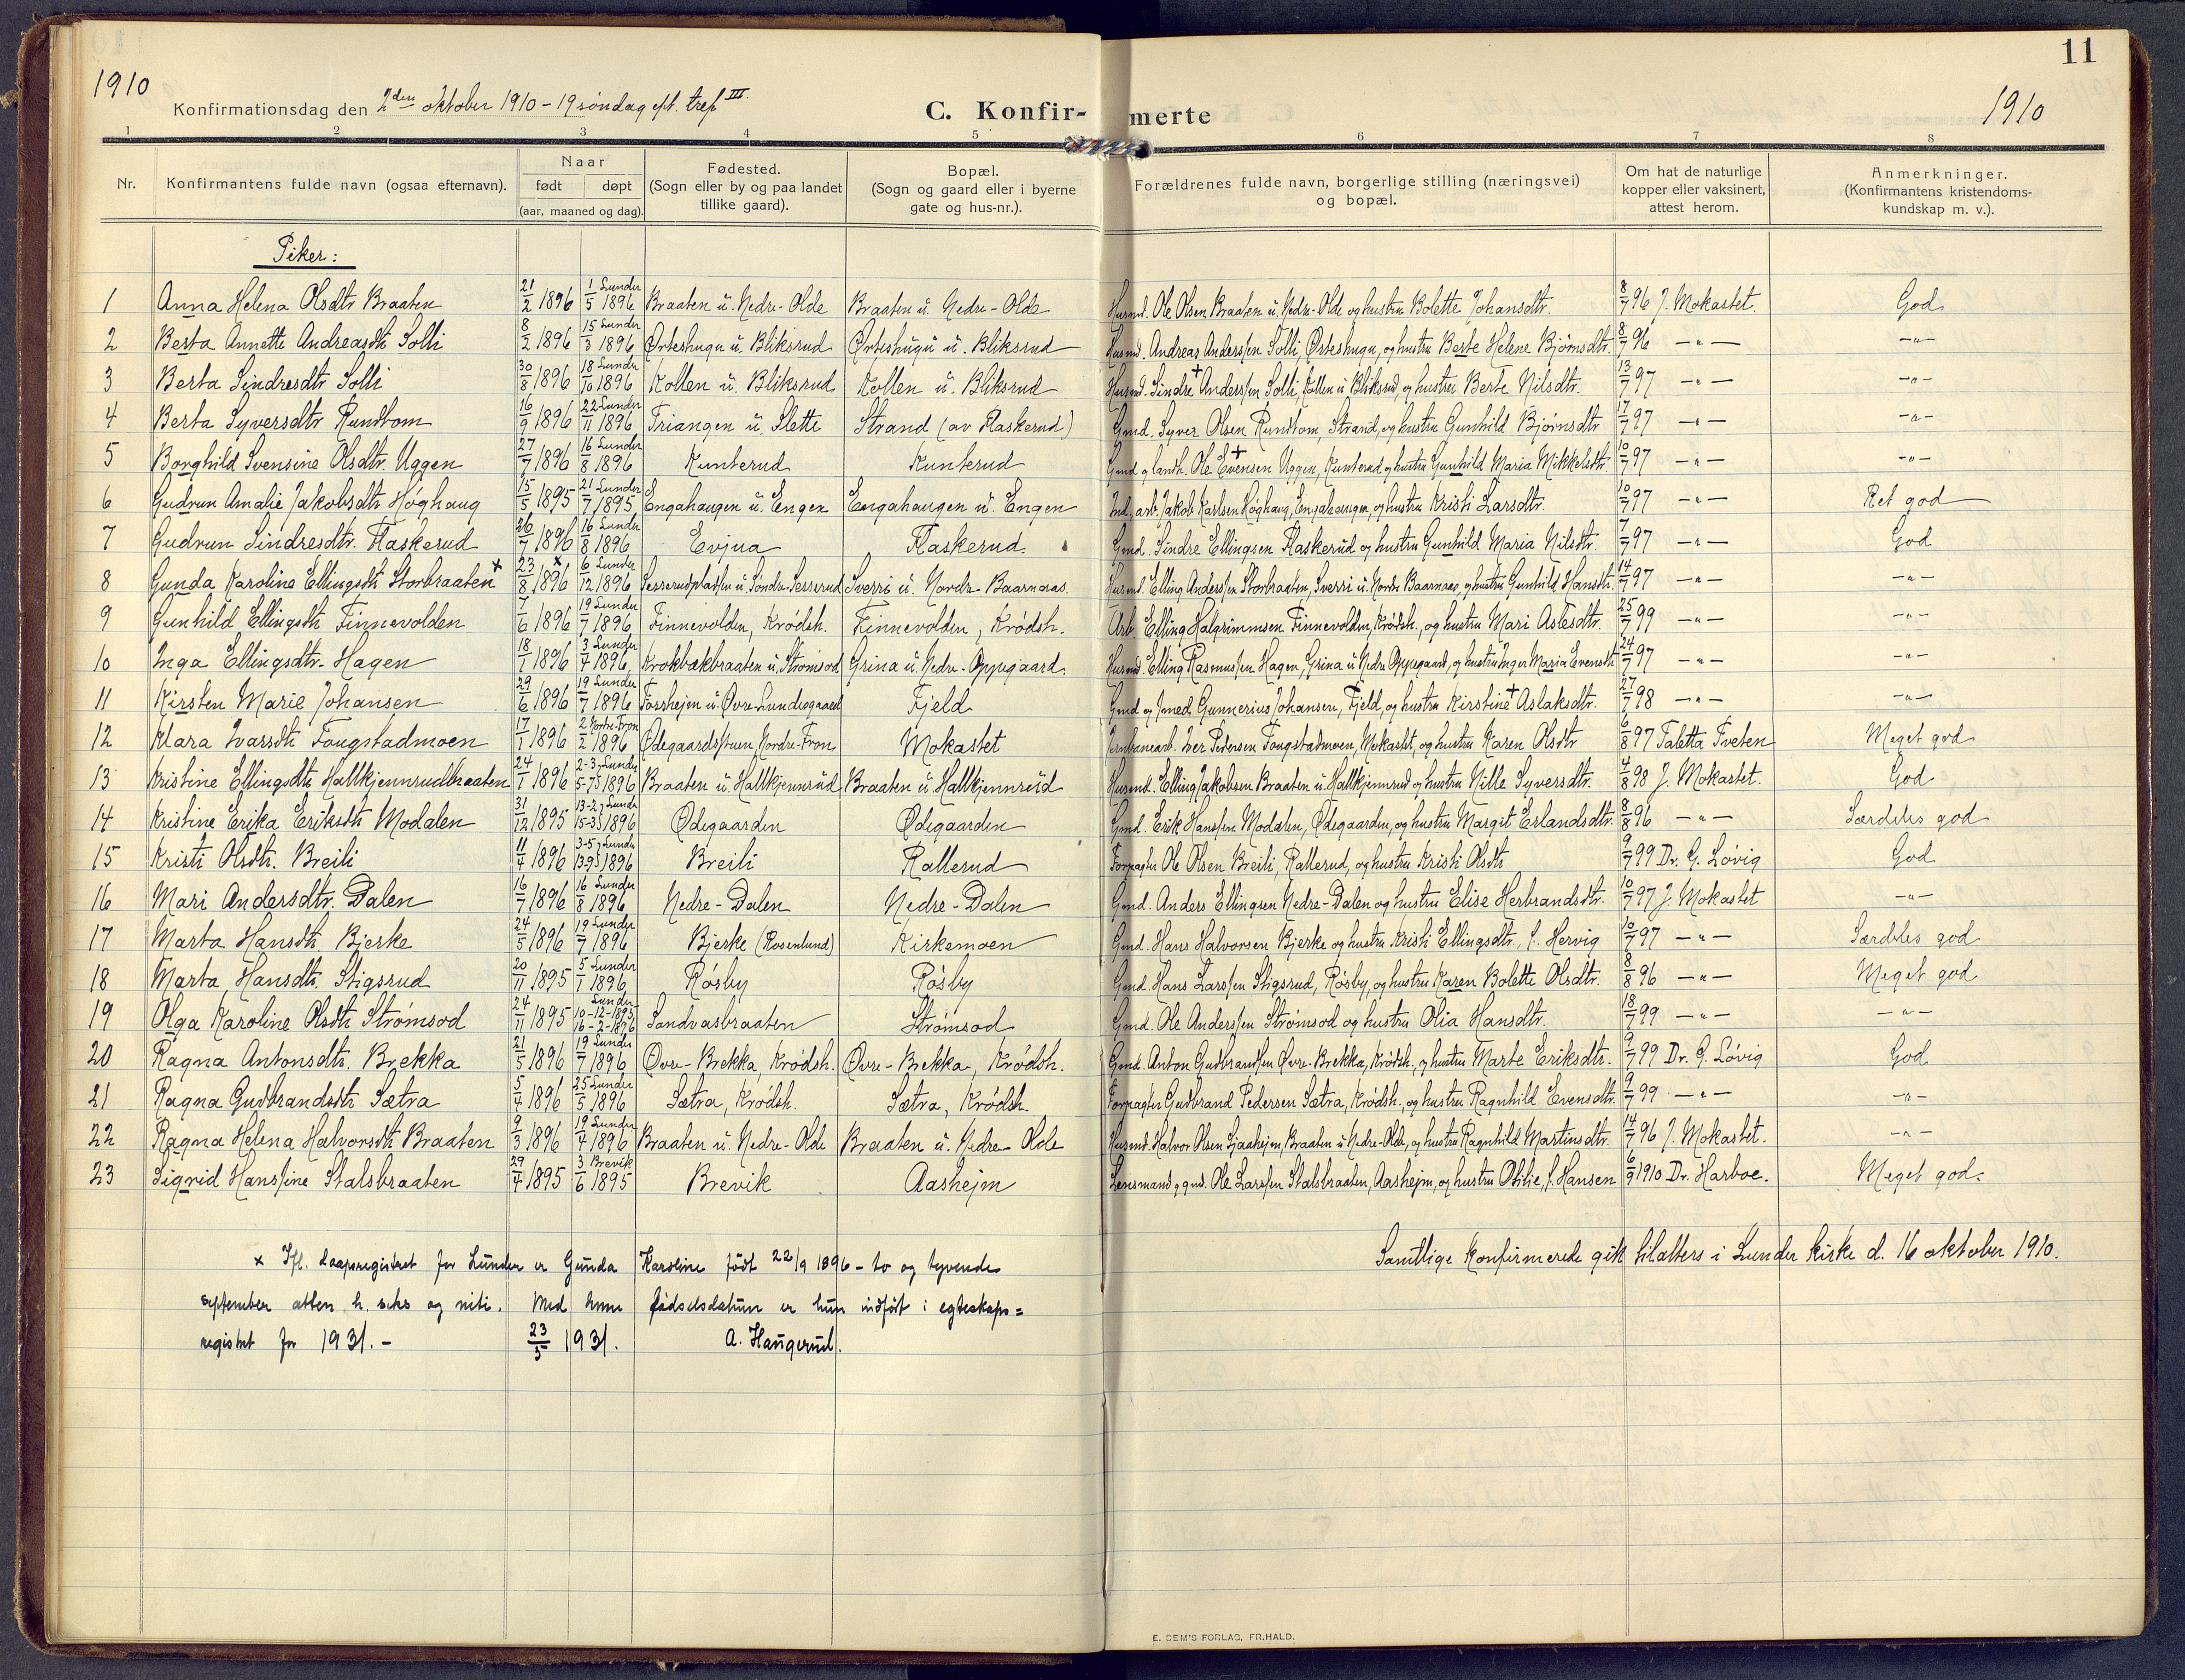 11
1910
1910
Konfirmationsdag den 2den oktober 1910 - 19 søndag eft. tref III.
C. Konfirmerte
1 2 3 4 5 6 7 8
Nr. | Konfirmantens fulde navn (ogsaa efternavn). | Naar født døpt (aar, maaned og dag). | Fødested. (Sogn eller by og paa landet tillike gaard). | Bopæl. (Sogn og gaard eller i byerne gate og hus-nr.). | Forældrenes fulde navn, borgerlige stilling (næringsvei) og bopæl. | Om hat de naturlige kopper eller vaksinert, attest herom. | Anmerkninger. (Konfirmantens kristendomskundskap m. v.).
Piker:
1 Anna Helena Olsdtr Braaten 21/2 1896 1/5 Lunder 1896 Braaten u. Nedre-Olde Braaten u. Nedre-Olde Husmd. Ole Olsen Braaten u. Nedre-Olde og hustru Bolette Johansdtr. 8/7 96 J. Mokastet. God
2 Berta Annette Andreasdtr Solli 8/2 1896 15/3 Lunder 1896 Ørteshugu u. Bliksrud Ørteshugu u. Bliksrud Husmd. Andreas Anderssen Solli, Ørteshugu, og hustru Berte Helene Bjørnsdtr. 8/7 96 -"- -"-
3 Berta Sindresdtr Solli 30/8 1896 18/10 Lunder 1896 Kollen u. Bliksrud Kollen u. Bliksrud Husmd. Sindre + Anderssen Solli, Kollen u. Bliksrud, og hustru Berte Nilsdtr. 13/7 97 -"- -"-
4 Berta Syversdtr Rundtom 16/9 1896 22/11 Lunder 1896 Triangen u. Slette Strand (av Flaskerud) Gmd. Syver Olsen Rundtom, Strand, og hustru Gunhild Bjørnsdtr 17/7 97 -"- -"-
5 Borghild Svensine Olsdtr. Uggen 27/7 1896 16/8 Lunder 1896 Kunterud Kunterud Gmd og landh. Ole + Evensen Uggen, Kunterud og hustru Gunhild Maria Mikkelsdtr. 10/7 97 -"- -"-
6 Gudrun Amalie Jakobsdtr Høghaug 15/5 1895 21/7 Lunder 1895 Engahaugen u. Engen Engahaugen u. Engen Ind., arb. Jakob Karlsen Høghaug, Engahaugen, og hustru Kristi Larsdtr. 10/7 97 -"- Ret god
7 Gudrun Sindresdtr. Flaskerud 26/7 1896 16/8 Lunder 1896 Evjua Flaskerud Gmd. Sindre Ellingsen Flaskerud og hustru Gunhild Maria Nilsdtr. 7/7 97 -"- God
8 Gunda Karoline Ellingsdtr Storbraaten x 23/8 x 1896 6/12 Lunder 1896 Sesserudpladsen u. Søndre-Sesserud Sverri u. Nordre-Baarnaas. Husmd. Elling Anderssen Storbraaten, Sverri u. Nordre Baarnaas, og hustru Gunhild Hansdtr. 14/7 97 -"- -"-
9 Gunhild Ellingsdtr Finnevolden 7/6 1896 19/7 Lunder 1896 Finnevolden, Krødsh. Finnevolden, Krødsh. Arb. Elling Halgrimmsen Finnevolden, Krødsh., og hustru Mari Aslesdtr. 25/7 99 -"- -"-
10 Inga Ellingsdtr. Hagen 18/1 1896 3/4 Lunder 1896 Krokbækbraaten u. Strømsod Grina u. Nedre-Oppegaard. Husmd. Elling Rasmussen Hagen, Grina u. Nedre Oppegaard, og hustru Inger Maria Evensdtr 24/7 97 -"- -"-
11 Kirsten Marie Johansen 29/6 1896 19/7 Lunder 1896 Forshejen u. Øvre-Lundesgaard Fjeld Gmd og smed Gunnerius Johansen, Fjeld, og hustru Kirstine + Aslaksdtr. 27/7 98 -"- -"-
12 Klara Ivarsdtr Fougstadmoen 17/1 1896 2/2 Nordre-Fron 1896 Ødegaardsstuen, Nordre-Fron Mokastet Jernbanearb. Iver Pedersen Fougstadmoen, Mokastet, og hustru Karen Olsdtr 6/8 97 Taletta Tveten Meget god
13 Kristine Ellingsdtr Hallkjennrudbraaten 24/1 1896 2-3, 5-7 Lunder 1896 Braaten u Hallkjennrud Braaten u Hallkjennrud Husmd. Elling Jakobsen Braaten u. Hallkjennrud og hustru Nille Syversdtr. 4/8 98 J. Mokastet. God
14 Kristine Erika Eriksdtr Modalen 31/12 1895 13-2, 15-3 Lunder 1896 Ødegaarden Ødegaarden Gmd. Erik Hanssen Modalen, Ødegaarden, og hustru Margit Erlandsdtr. 8/8 96 -"- Særdeles god
15 Kristi Olsdtr. Breili 11/4 1896 3-5, 13-9 Lunder 1896 Breili Rallerud Forpagter Ole Olsen Breili, Rallerud, og hustru Kristi Olsdtr 9/7 99 Dr. G. Løvig God
16 Mari Andersdtr. Dalen 16/7 1896 16/8 Lunder 1896 Nedre-Dalen Nedre-Dalen Gmd. Anders Ellingsen Nedre-Dalen og hustru Elise Herbrandsdtr. 10/7 97 J. Mokastet -"-
17 Marta Hansdtr. Bjerke 24/5 1896 19/7 Lunder 1896 Bjerke (Rosenlund) Kirkemoen Gmd. Hans Halvorsen Bjerke og hustru Kristi Ellingsdtr., f. Hervig 10/7 97 -"- Særdeles god
18 Marta Hansdtr. Stigsrud 20/11 1895 5/1 Lunder 1896 Røsby Røsby Gmd. Hans Larssen Stigsrud, Røsby, og hustru Karen Bolette Olsdtr. 8/8 96 -"- Meget god
19 Olga Karoline Olsdtr Strømsod 24/11 1895 Lunder 10-12-1895 16-2-1896 Sandvasbraaten Strømsod Gmd. Ole Anderssen Strømsod og hustru Olia Hansdtr. 18/7 99 -"- -"-
20 Ragna Antonsdtr. Brekka 21/5 1896 19/7 Lunder 1896 Øvre-Brekka, Krødsh. Øvre-Brekka, Krødsh. Gmd. Anton Gudbrandsen Øvre-Brekka, Krødsh., og hustru Marte Eriksdtr. 9/7 99 Dr. G. Løvig God
21 Ragna Gudbrandsdtr Sætra 5/4 1896 25/5 Lunder 1896 Sætra, Krødsh. Sætra, Krødsh. Forpagter Gudbrand Pedersen Sætra, Krødsh., og hustru Ragnhild Evensdtr. 9/7 99 -"- -"-
22 Ragna Helena Halvorsdtr Braaten 9/3 1896 19/4 Lunder 1896 Braaten u. Nedre-Olde Braaten u. Nedre-Olde Husmd. Halvor Olsen Gjaahejen, Braaten u. Nedre-Olde, og hustru Ragnhild Martinsdtr. 14/7 96 J. Mokastet. -"-
23 Sigrid Hanssine Stalsbraaten 29/4 1895 3/6 Brevik 1895 Brevik Aashejm Lensmand og gmd. Ole Larssen Stalsbraaten, Aashejm, og hustru Otilie, f. Hansen 6/9 1910 Dr. Harboe. Meget god.
Samtlige konfirmerede gik tilalters i Lunder kirke d. 16 oktober 1910.
x Ifl. daapsregistret for Lunder er Gunda Karoline født 22/9 1896 - to og tyvende
september atten h. seks og nitti. Med denne fødselsdatum er hun indført i egteskaps=
registret for 1931. - 23/5 1931. A. Haugerud.
E. SEM'S FORLAG, FR.HALD.